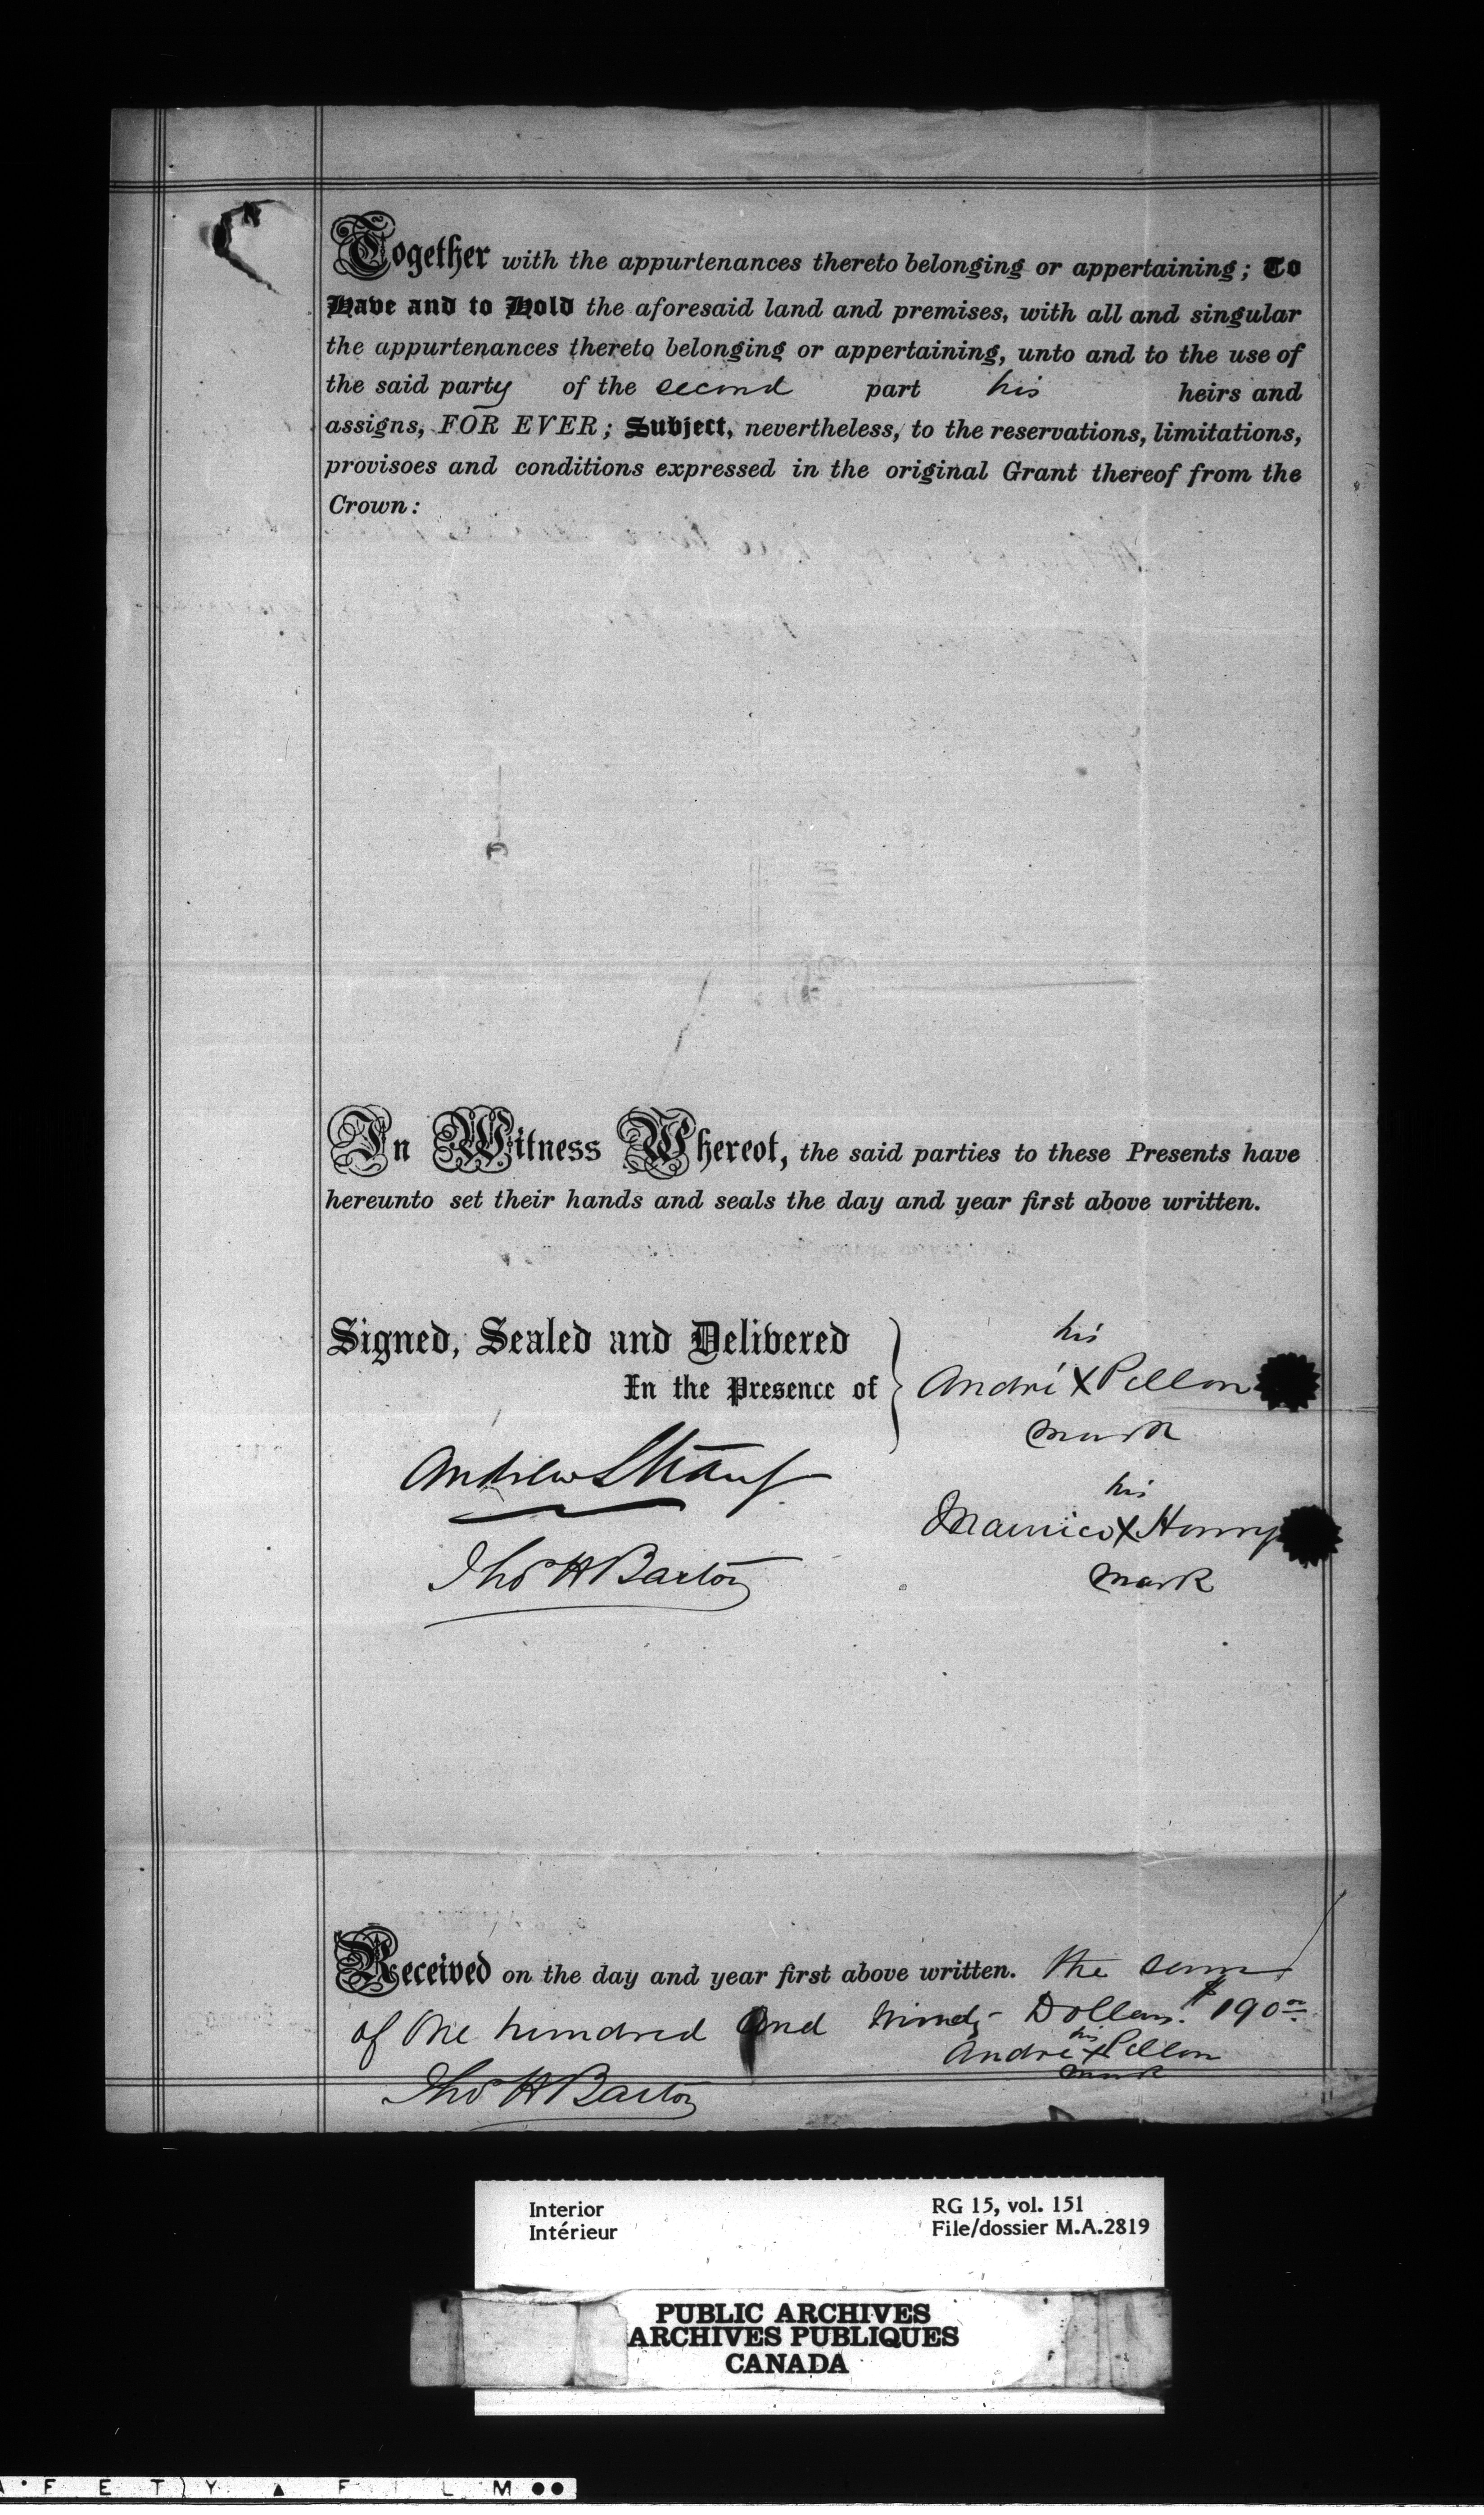 Together with the appurtenances thereto belonging or appertaining; To
Have and to Hold the aforesaid land and premises, with all and singular
the appurtenances thereto belonging or appertaining, unto and to the use of
the said party of the second part his heirs and
assigns, FOR EVER; Subject, nevertheless, to the reservations, limitations,
provisoes and conditions expressed in the original Grant thereof from the
Crown:
In Witness Whereof, the said parties to these Presents have
hereunto set their hands and seals the day and year first above written.
Signed, Sealed and Delivered
In the Presence of
his
André X Pellon
mark
Andrew
his
Maurice X Henry
mark
Tho H Barton
Received on the day and year first above written. the sum
of One hundred and ninety Dollars. $190
his
André X Pellon
mark
Tho H Barton
Interior
Intérieur
RG 15, vol. 151
File/dossier M.A.2819
PUBLIC ARCHIVES
ARCHIVES PUBLIQUES
CANADA
A F E T Y ▲ F I L M ●●